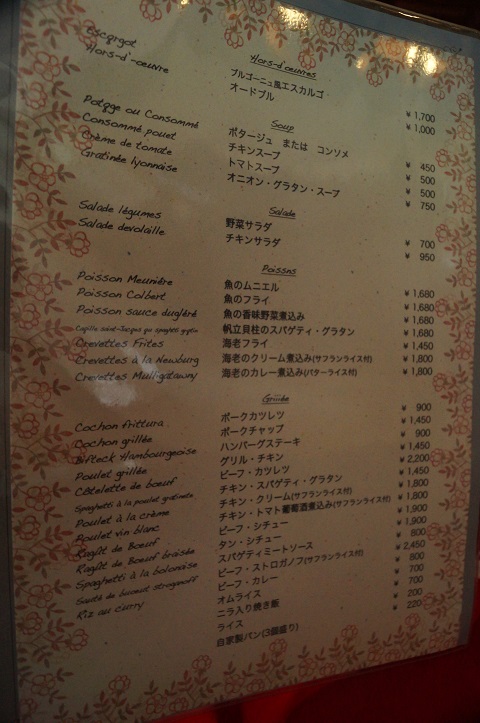 Hors-d'oeuvres
Escargot ブルゴーニュ風エスカルゴ ¥1,700
Hors-d'-oeuvre オードブル ¥1,000
Soup
Potage ou Consommé ポタージュ または コンソメ ¥450
Consommé pouet チキンスープ ¥500
Crème de tomate トマトスープ ¥500
Gratinée lyonnaise オニオン・グラタン・スープ ¥750
Salade
Salade légumes 野菜サラダ ¥700
Salade devolaille チキンサラダ ¥950
Poissns
Poisson Meunière 魚のムニエル ¥1,680
Poisson Colbert 魚のフライ ¥1,680
Poisson sauce dugléré 魚の香味野菜煮込み ¥1,680
帆立貝柱のスパゲティ・グラタン ¥1,680
Crevettes Frites 海老フライ ¥1,450
Crevettes à la Newburg 海老のクリーム煮込み(サフランライス付) ¥1,800
Crevettes Mulligatawny 海老のカレー煮込み(バターライス付) ¥1,800
Cochon frittura ポークカツレツ ¥900
Cochon grillée ポークチャップ ¥1,450
Bifteck Hambourgeoise ハンバーグステーキ ¥900
Poulet grillée グリル・チキン ¥2,200
Côtelette de boeuf ビーフ・カツレツ ¥1,450
Spaghetti à la poulet gratinée チキン・スパゲティ・グラタン ¥1,800
Poulet à la crème チキン・クリーム(サフランライス付) ¥1,800
Poulet vin blanc チキン・トマト葡萄酒煮込み(サフランライス付) ¥1,900
Ragût de Boeuf ビーフ・シチュー ¥1,900
Ragût de Boeuf braisée タン・シチュー ¥800
Spaghetti à la bolonaise スパゲティミートソース ¥2,450
ビーフ・ストロガノフ(サフランライス付) ¥800
Riz au curry ビーフ・カレー ¥700
オムライス ¥700
ニラ入り焼き飯 ¥200
ライス ¥220
自家製パン(3個盛り)